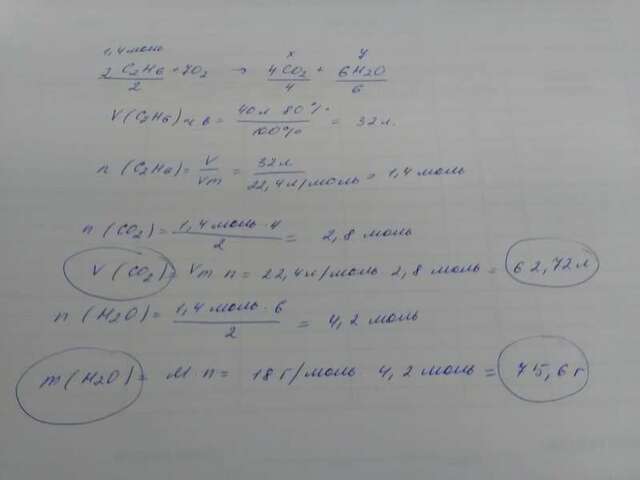 1,4 моль x y
2 C2H6 + 7O2 → 4CO2 + 6H2O
2 4 6
V(C2H6) ч в = 40 л 80% / 100% = 32 л.
n (C2H6) = V / Vm = 32 л / 22,4 л/моль = 1,4 моль
n (CO2) = 1,4 моль · 4 / 2 = 2,8 моль
V (CO2) = Vm n = 22,4 л/моль 2,8 моль = 62,72 л
n (H2O) = 1,4 моль · 6 / 2 = 4,2 моль
m (H2O) = M n = 18 г/моль 4,2 моль = 75,6 г